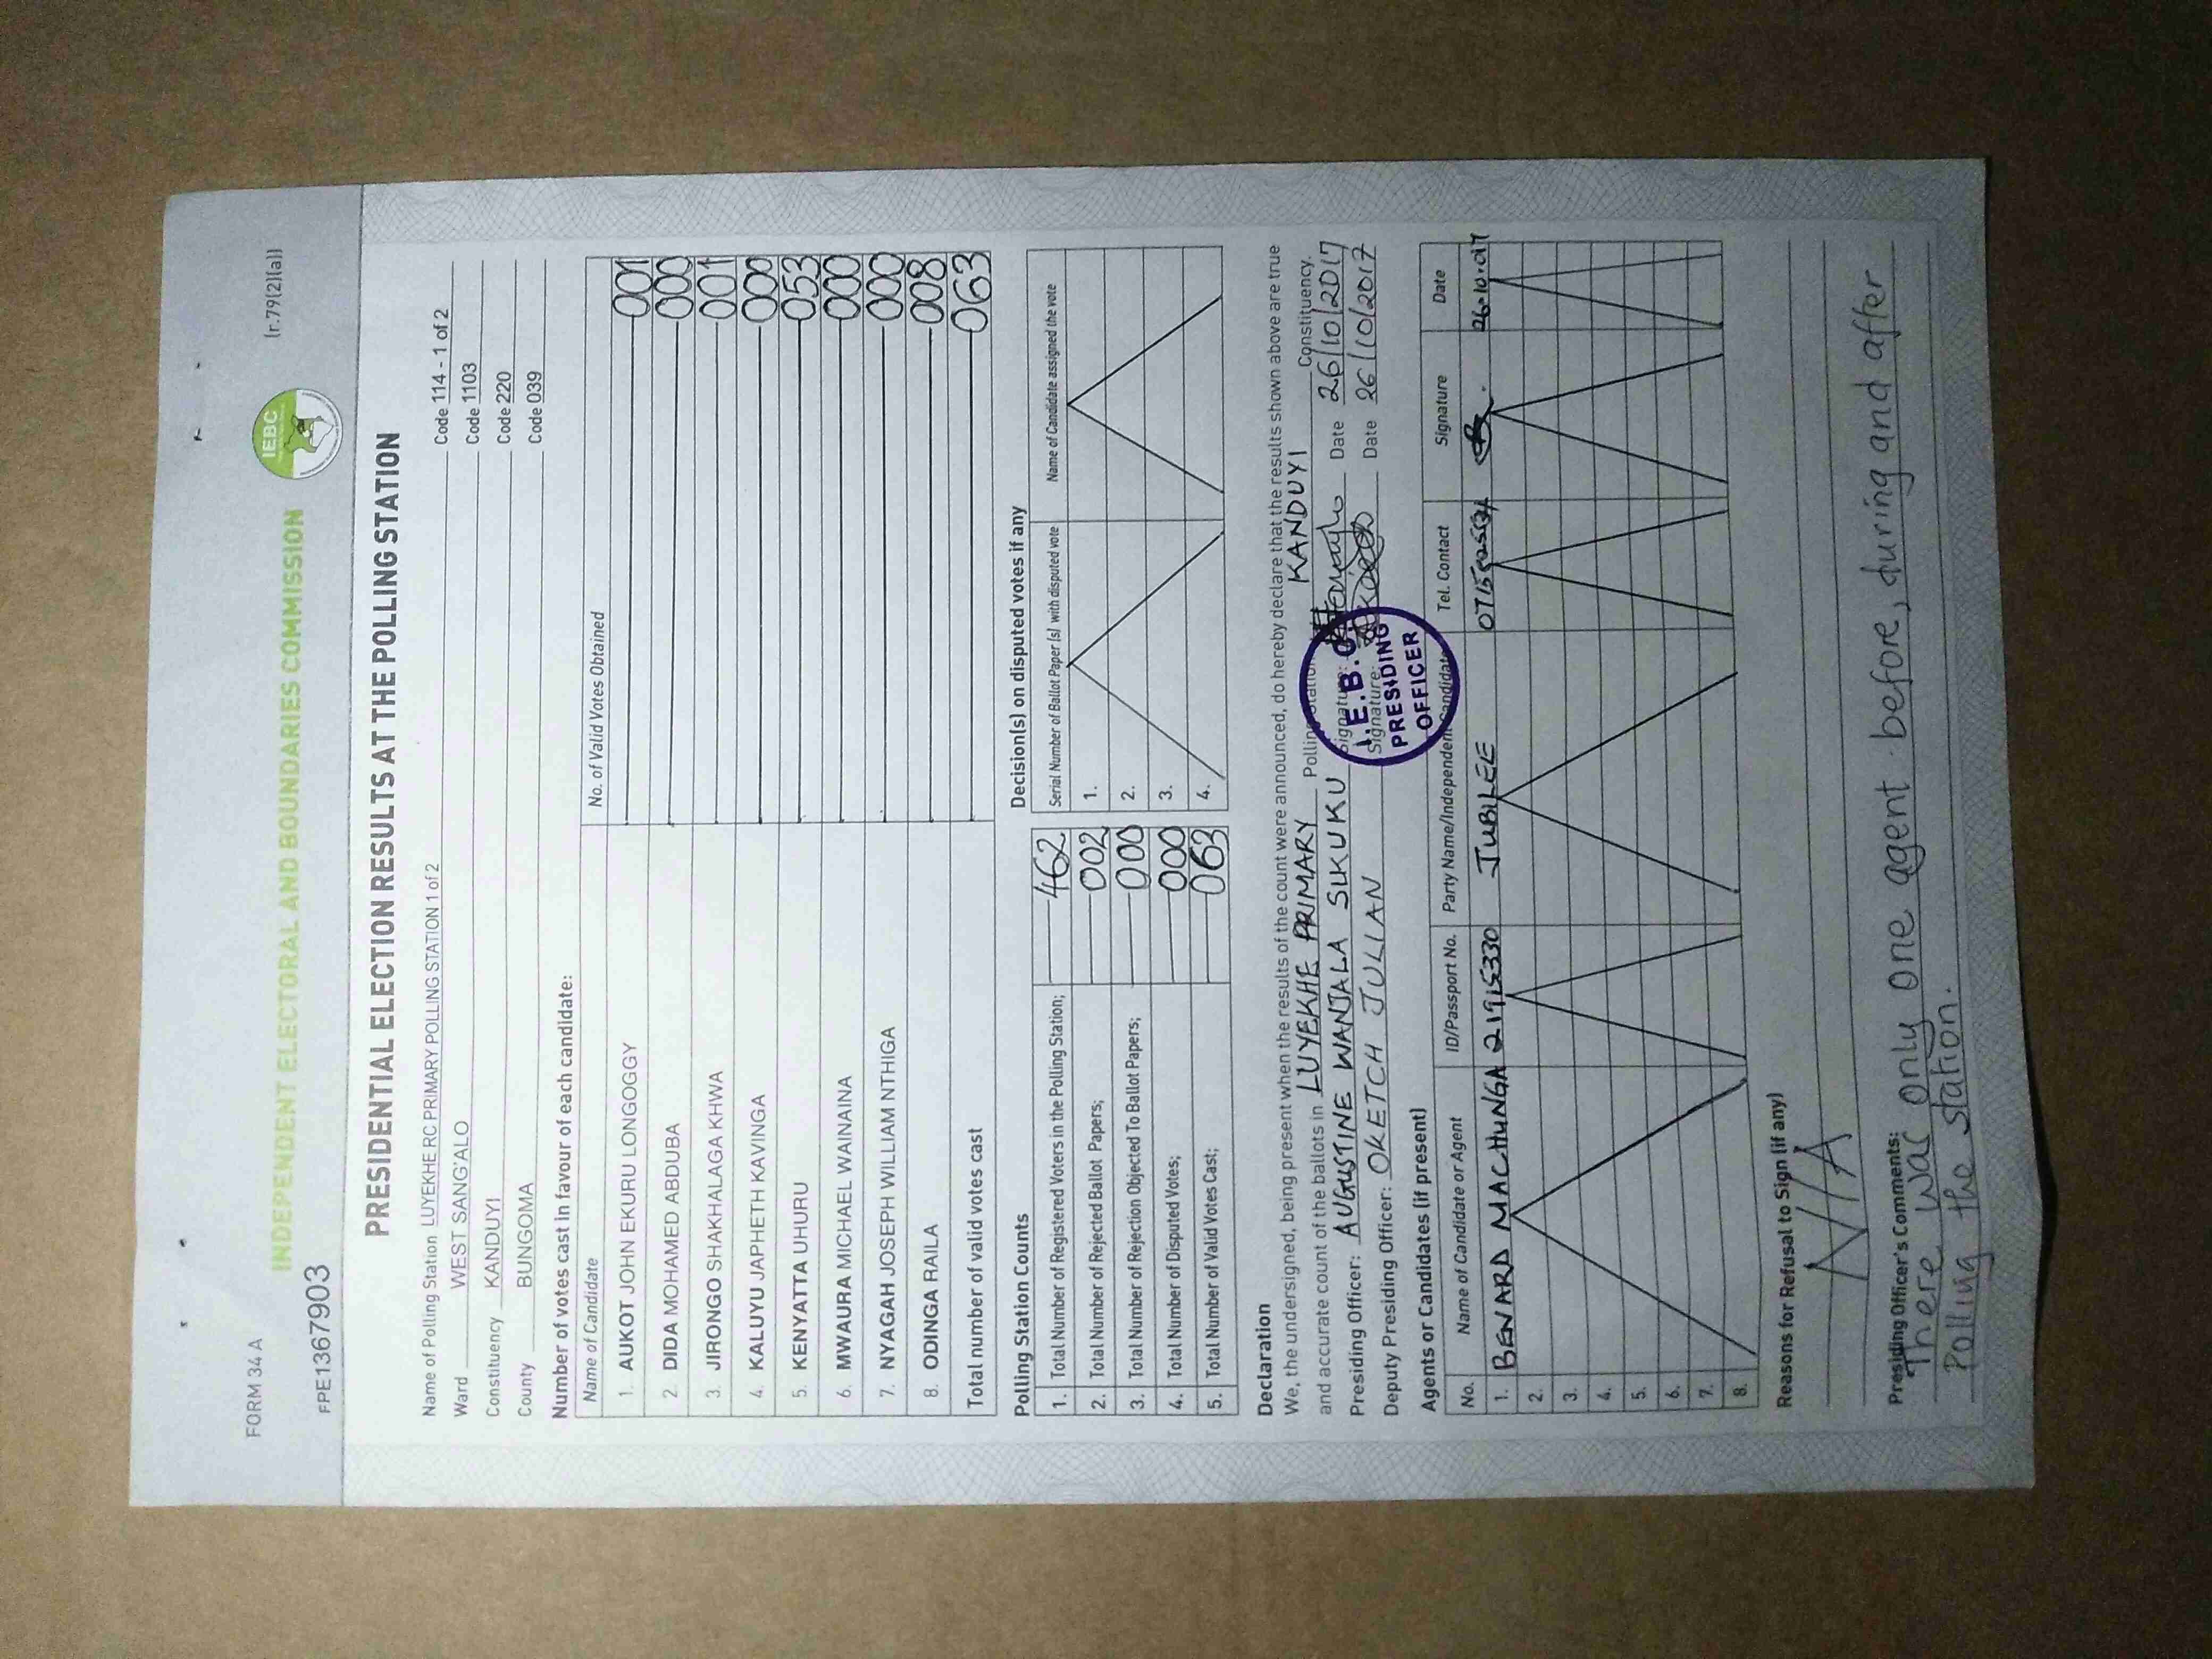 FORM 34 A
(r.79(2)(a))
INDEPENDENT ELECTORAL AND BOUNDARIES COMMISSION
IEBC
FPE1367903
PRESIDENTIAL ELECTION RESULTS AT THE POLLING STATION
Name of Polling Station LUYEKHE RC PRIMARY POLLING STATION 1 of 2 Code 114 - 1 of 2
Ward WEST SANG'ALO Code 1103
Constituency KANDUYI Code 220
County BUNGOMA Code 039
Number of votes cast in favour of each candidate:
Name of Candidate No. of Valid Votes Obtained
1. AUKOT JOHN EKURU LONGOGGY 001
2. DIDA MOHAMED ABDUBA 000
3. JIRONGO SHAKHALAGA KHWA 001
4. KALUYU JAPHETH KAVINGA 000
5. KENYATTA UHURU 053
6. MWAURA MICHAEL WAINAINA 000
7. NYAGAH JOSEPH WILLIAM NTHIGA 000
8. ODINGA RAILA 008
Total number of valid votes cast 063
Polling Station Counts
1. Total Number of Registered Voters in the Polling Station; 462
2. Total Number of Rejected Ballot Papers; 002
3. Total Number of Rejection Objected To Ballot Papers; 000
4. Total Number of Disputed Votes; 000
5. Total Number of Valid Votes Cast; 063
Decision(s) on disputed votes if any
Serial Number of Ballot Paper (s) with disputed vote Name of Candidate assigned the vote
1.
2.
3.
4.
Declaration
We, the undersigned, being present when the results of the count were announced, do hereby declare that the results shown above are true
and accurate count of the ballots in LUYEKHE PRIMARY Polling Station KANDUYI Constituency.
Presiding Officer: AUGUSTINE WANJALA SIKUKU Signature: Date 26/10/2017
Deputy Presiding Officer: OKETCH JULLIAN Signature: Date 26/10/2017
I.E.B.C
PRESIDING
OFFICER
Agents or Candidates (if present)
No. Name of Candidate or Agent ID/Passport No. Party Name/Independent Candidate Tel. Contact Signature Date
1. BENARD MACHUNGA 21915330 JUBILEE
2.
3.
4.
5.
6.
7.
8.
Reasons for Refusal to Sign (if any)
N/A
Presiding Officer's Comments:
There was only one agent before, during and after
Polling the station.